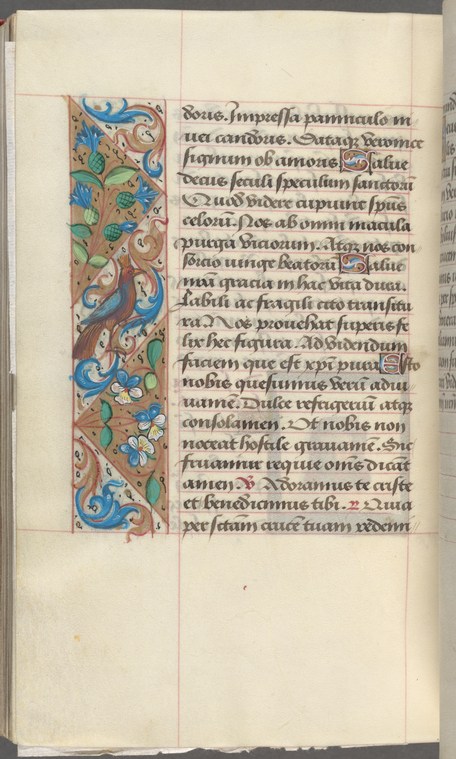 doris. Impressa panniculo ni
uei candoris. Dataq̃ veronice
signum ob amoris. Salue
decus seculi speculum sanctorũ
Quod videre cupiunt spũs
celorũ. Nos ab omni macula
purga viciorum. Atq̃ nos con
sorcio iunge beatorũ Salue
nr̃a gracia in hac vita dura.
Labili ac fragili cito transitu
ra. Nos prouehat superis fe
lix hec figura. Ad videndum
faciem que est xp̃i pura Esto
nobis quesumus verũ adiu
uamẽ. Dulce refrigeriũ atq̃
consolamen. Ut nobis non
noceat hostile grauamẽ. Sic
fruamur requie om̃s dicat
amen ℣ Adoramus te criste
et benedicimus tibi. ℟ Quia
per sc̃tam crucẽ tuam redemi